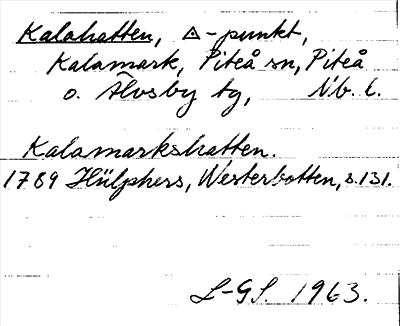 Kalahatten, △-punkt,
Kalamark, Piteå sn, Piteå
o. Älvsby tg, Nb. l.
Kalamarkshatten.
1789 Hülphers, Westerbotten, s.131.
L-GL. 1963.